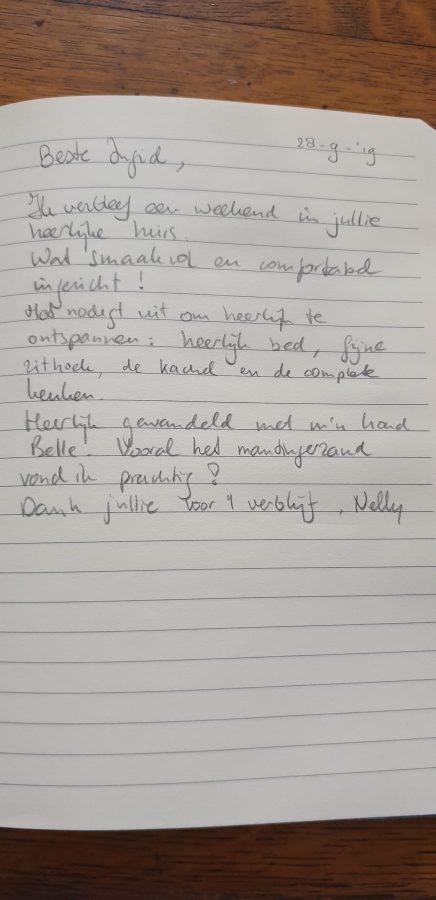 28-9-'19
Beste Ingrid,
Ik verbleef een weekend in jullie
heerlijke huis.
Wat smaakvol en comfortabel
ingericht!
Het nodigt uit om heerlijk te
ontspannen: heerlijk bed, fijne
zithoek, de kachel en de complete
keuken.
Heerlijk gewandeld met m'n hond
Belle! Vooral het mantingerzand
vond ik prachtig!
Dank jullie voor 't verblijf, Nelly